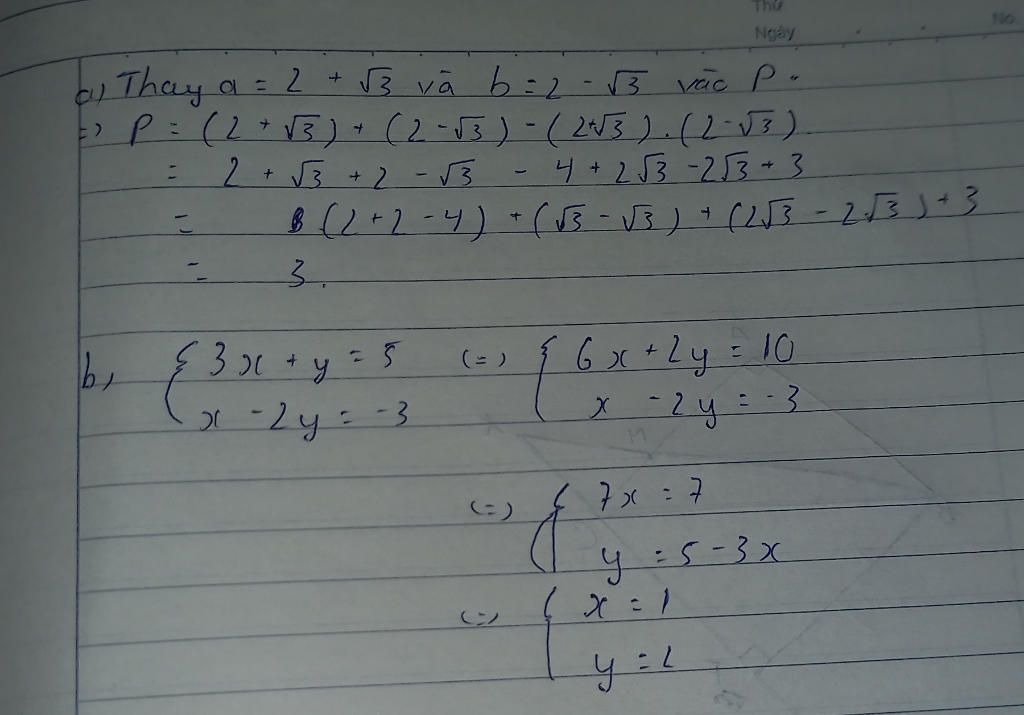 Thứ
Ngày
No.
a) Thay a = 2 + √3 và b = 2 - √3 vào P.
=> P = (2 + √3) + (2 - √3) - (2+√3).(2-√3)
= 2 + √3 + 2 - √3 - 4 + 2√3 - 2√3 + 3
= (2+2-4) + (√3 - √3) + (2√3 - 2√3) + 3
= 3.
b, { 3x + y = 5 (=) { 6x + 2y = 10
x - 2y = -3 x - 2y = -3
(=) { 7x = 7
y = 5 - 3x
(=) { x = 1
y = 2